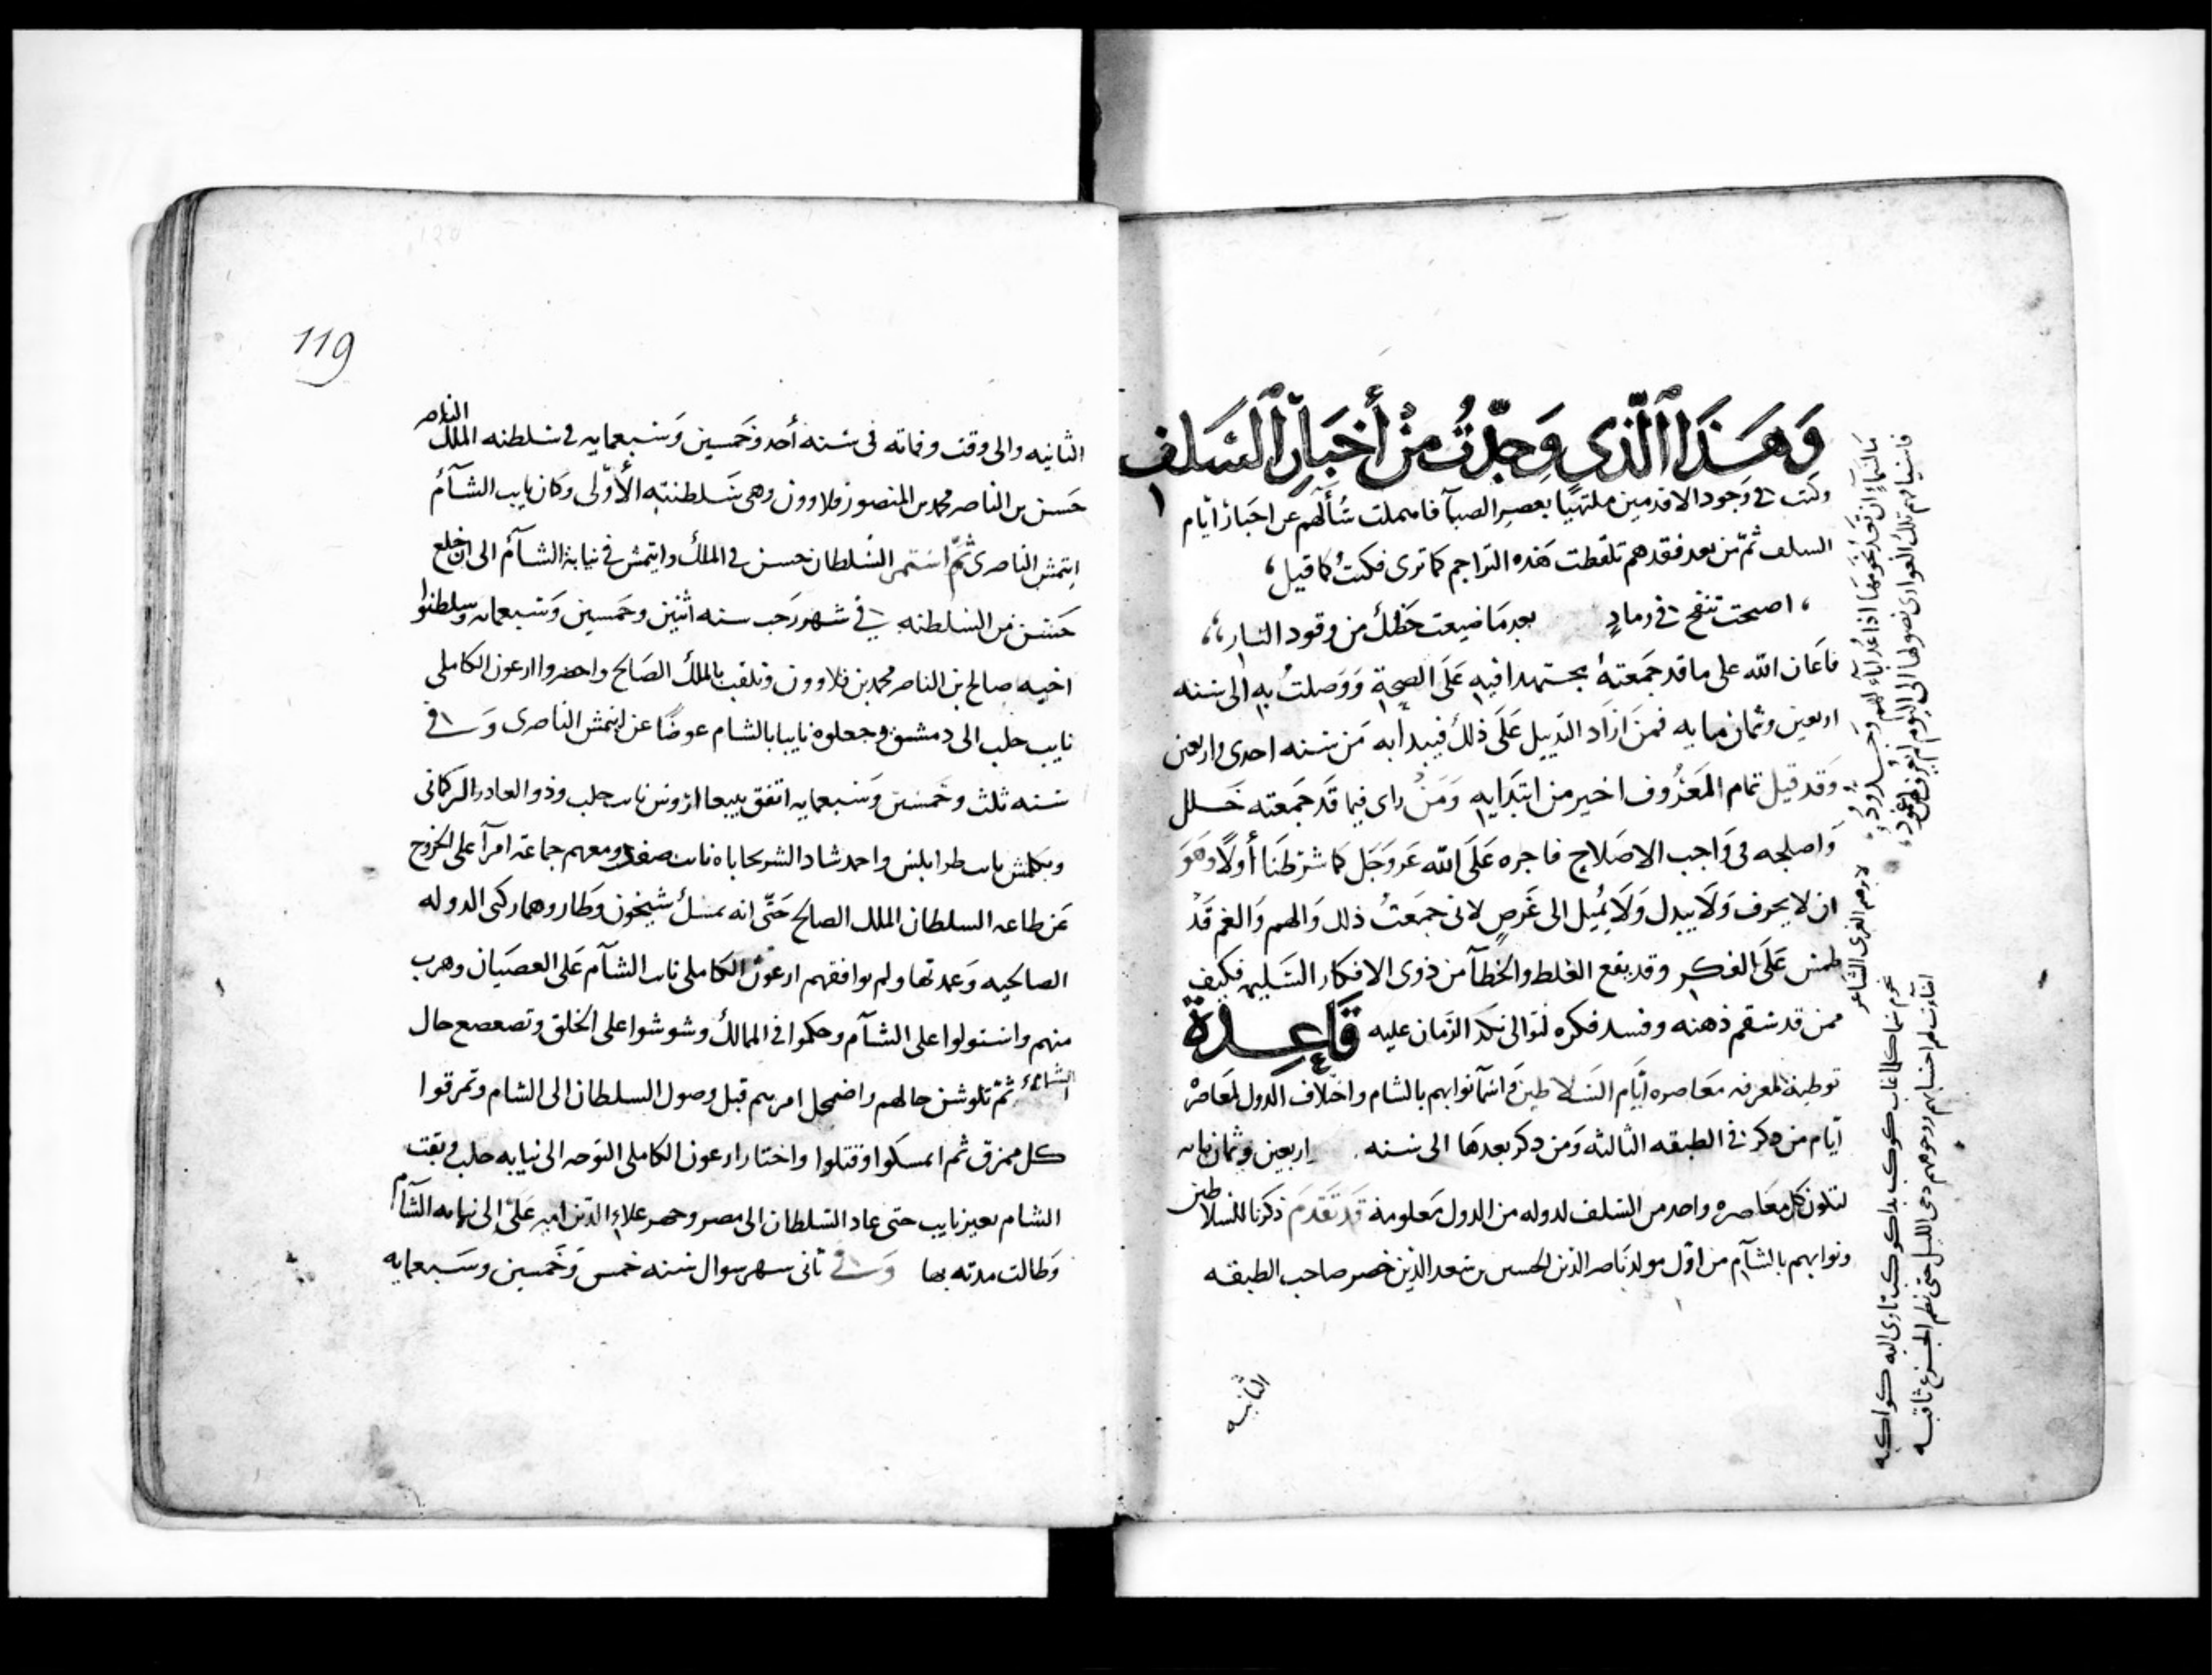 وَهَذَا الَّذي وَجَدْتُ مِنْ أَخْبَارِ السَلف
وكنت في وجود الاقدمين ملتهيًا بعصر الصبآ فاهملت سُألهم عن اخبار ايام
السلف ثمّ من بعد فقدهم تلقطت هذه التراجم كما ترى فكنتُ كما قيل
اصبحت تنفخ في رمادٍ بعد مَا ضيعت حَظك من وقود النار
فاعَان الله على ما قد جمَعتهُ مجتهدا فيه عَلَى الصِحة وَوَصلتُ به الى سنه
اربعين وثمان مايه فمَن ازاد التذييل عَلَى ذلك فيبدا به مَن سنه احدى واربعين
وَقد قيل تمام المعَرُوف اخير من ابتدَايه وَمَنْ راى فيما قد جَمعته خَلل
وَاصلحه في وَاجب الاصلاح فاجره عَلَى الله عَز وَجَل كما شرَطنَا أولًا وَهوَ
ان لا يحرف وَلَا يبدل وَلَا يُميل الى غَرضٍ لانى جمَعتُ ذلك وَالهم وَالغم قَدْ
طمس عَلَى الفكر وقد يقع الغلط والخطآ من ذوى الافكار السَليمه فكيف
ممن قد سَقم ذهنه وفسد فكره لتوالى نكد الزمَان عليه قَاعِدة
توطية لمعرفه معَاصره ايَّام السَلاطين وَاسمآ نوابهم بالشام واختلاف الدول لمعَاصرة
ايَّام من ذكر في الطبقه الثالثه وَمن ذكر بعدهَا الى سنه اربعين وثمان مايه
لتكون كل معَاصره واحد من السَلف لدوله من الدول مَعلومة قَد تَقدمَ ذكرنا للسلاطين
ونوابهم بالشآم من اوّل مولد نَاصر الدين الحسين بن سَعد الدين خضر صاحب الطبقه
الثانيه
مَا السَمآءِ ان تَعد نجومهَا اذا عُد اباء لهم وَجُدُودُ
فاسيافهم تلك العوارى نصولها الى اليَوم لم يُعرَف لهُنّ غمُود
لابرهيم الغزى الشاعر
نجوم سَما كلما غاب كوكب بدا كوكب تاوى اليه كواكبه
اضآءت لهم احسَابهم ووجوههم دجى الليل حتى نظم الجزع ثاقبه
119
الثانيه والى وقت وفاته في سَنة أحد وخَمسين وَسَبعمايه في سَلطنه الملك الناصر
حَسَن بن الناصر محمد بن المنصور قلاوون وهى سَلطنته الأوّلى وَكان نايب الشَآم
ايتمش الناصرى ثمّ استمر السُلطان حسن في الملك وايتمش في نيابة الشآم الى ان خلع
حَسَن من السَلطنه في شهر رَجب سنه اثنين وخَمسين وَسَبعمايه وسلطنوا
اخيه صالح بن الناصر محمد بن قلاوون وتلقب بالملك الصَالح واحضروا ارغون الكاملى
نايب حلب الى دمشق وجعلوه نايبا بالشام عوضًا عن ايتمش الناصرى وَفي
سَنه ثلث وخَمسَين وَسَبعمايه اتفق بيبغا اروس نايب حلب وذو الغادر التركمانى
وبكلمش نايب طرابلس واحمد شاد الشربخاناه نايب صفد ومعهم جماعَة امرآ على الخروج
عَن طاعه السلطان الملك الصالح حَتّى انه مسَك شيخون وَطاز وهما ركنى الدوله
الصالحيه وَعمدتها ولم يوافقهم ارغون الكاملى نايب الشآم عَلى العصَيان وهرب
منهم واستولوا على الشآم وحكموا في الممالك وشوشوا على الخلق وتصعصع حال
الشآم ثمّ تلوشَن حالهم واضمحل امرهم قبل وصول السلطان الى الشام وتمزقوا
كل ممزق ثم امسكوا وقتلوا واختار ارغون الكاملى التوَجه الى نيابه حلب وبقت
الشام بغير نايب حتى عاد السَلطان الى مصر وحضر علاء الدين امير عَلىْ الى نيابه الشَآم
وَطالت مدته بها وَفي ثانى شهر شوال سَنه خمس وَخَمسين وسَبعمايه